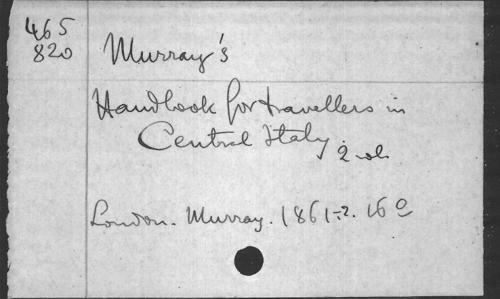 465
820
Murray's
Handbook for travellers in
Central Italy 2 vols
London. Murray. 1861-2. 16º